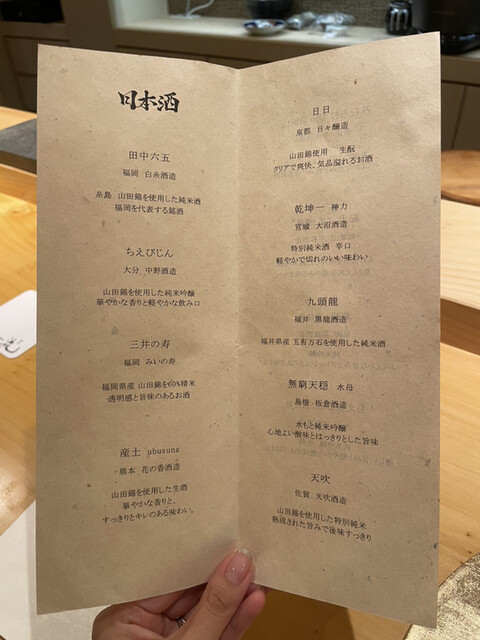 日本酒
田中六五
福岡 白糸酒造
糸島 山田錦を使用した純米酒
福岡を代表する銘酒
ちえびじん
大分 中野酒造
山田錦を使用した純米吟醸
華やかな香りと軽やかな飲み口
三井の寿
福岡 みいの寿
福岡県産 山田錦を60%精米
透明感と旨味のあるお酒
産土 ubusuna
熊本 花の香酒造
山田錦を使用した生酒
華やかな香りと、
すっきりとキレのある味わい。
日日
京都 日々醸造
山田錦使用 生酛
クリアで爽快、気品溢れるお酒
乾坤一 神力
宮城 大沼酒造
特別純米酒 辛口
軽やかで切れのいい味わい
九頭龍
福井 黒龍酒造
福井県産 五百万石を使用した純米酒
無窮天穏 水母
島根 板倉酒造
水もと純米吟醸
心地よい酸味とはっきりとした旨味
天吹
佐賀 天吹酒造
山田錦を使用した特別純米
熟成された旨みで後味すっきり